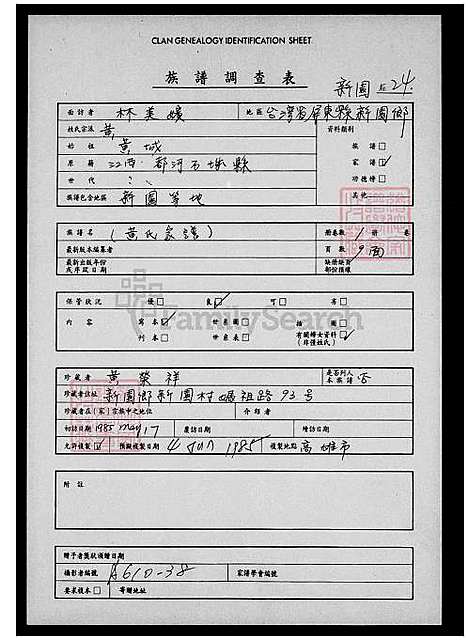 CLAN GENEALOGY IDENTIFICATION SHEET
族譜調查表
新園 24.
面訪者 林美嬪 地區 台灣省屏東縣新園鄉
姓氏宗派 黃 資料類別
始祖 黃城 族譜□
原籍 江西 縣 家譜☑
世代 功德榜□
族譜包含地區 新園等地 其他
族譜名 (黃氏家譜) 冊卷數 1 冊 卷
最新版本編纂者 頁數 9面
最新出版年份或序跋日期 缺冊缺頁部份預線
FamilySearch
保管狀況 優□ 良☑ 可□ 劣□
內容 寫本☑ 世系圖□ 插圖□
刊本□ 世系表□ 有關婦女資料(非僅姓氏)
珍藏者 黃榮祥 是否列入本族譜 否
珍藏者住址 新園鄉新園村媽祖路93号
珍藏者在(家)宗族中之地位 介紹者
初訪日期 1985 May 17 復訪日期 增訪日期
允許複製☑ 預擬複製日期 4 JUN 1985 複製地點 高雄市
附註
贈予者獎狀頒贈日期
攝影者編號 A610-38 家譜學會編號
要求複本□ 寄贈地址